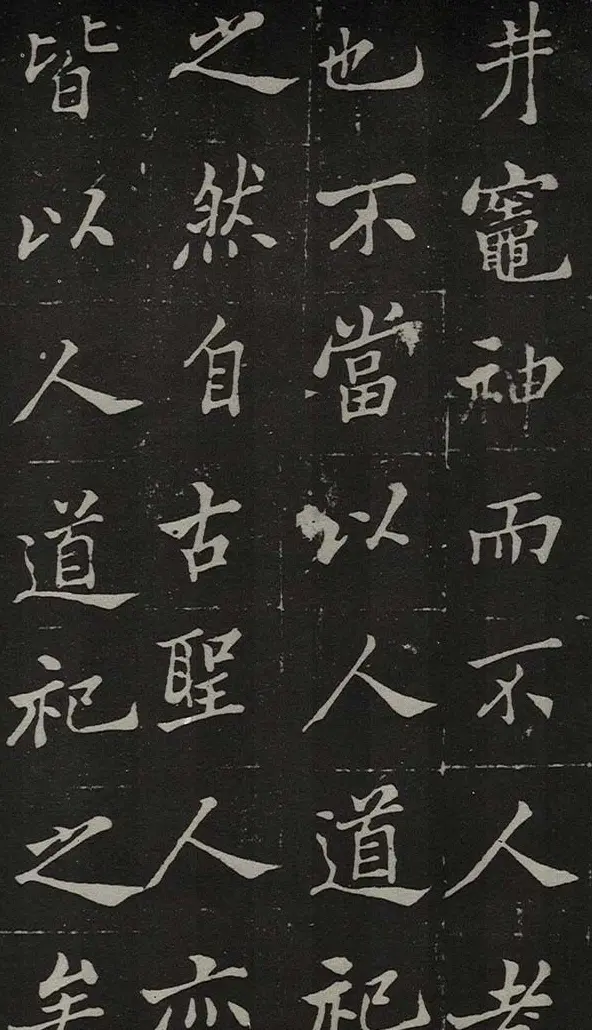 井竈神而不人者
也不當以人道祀
之然自古聖人亦
皆以人道祀之矣